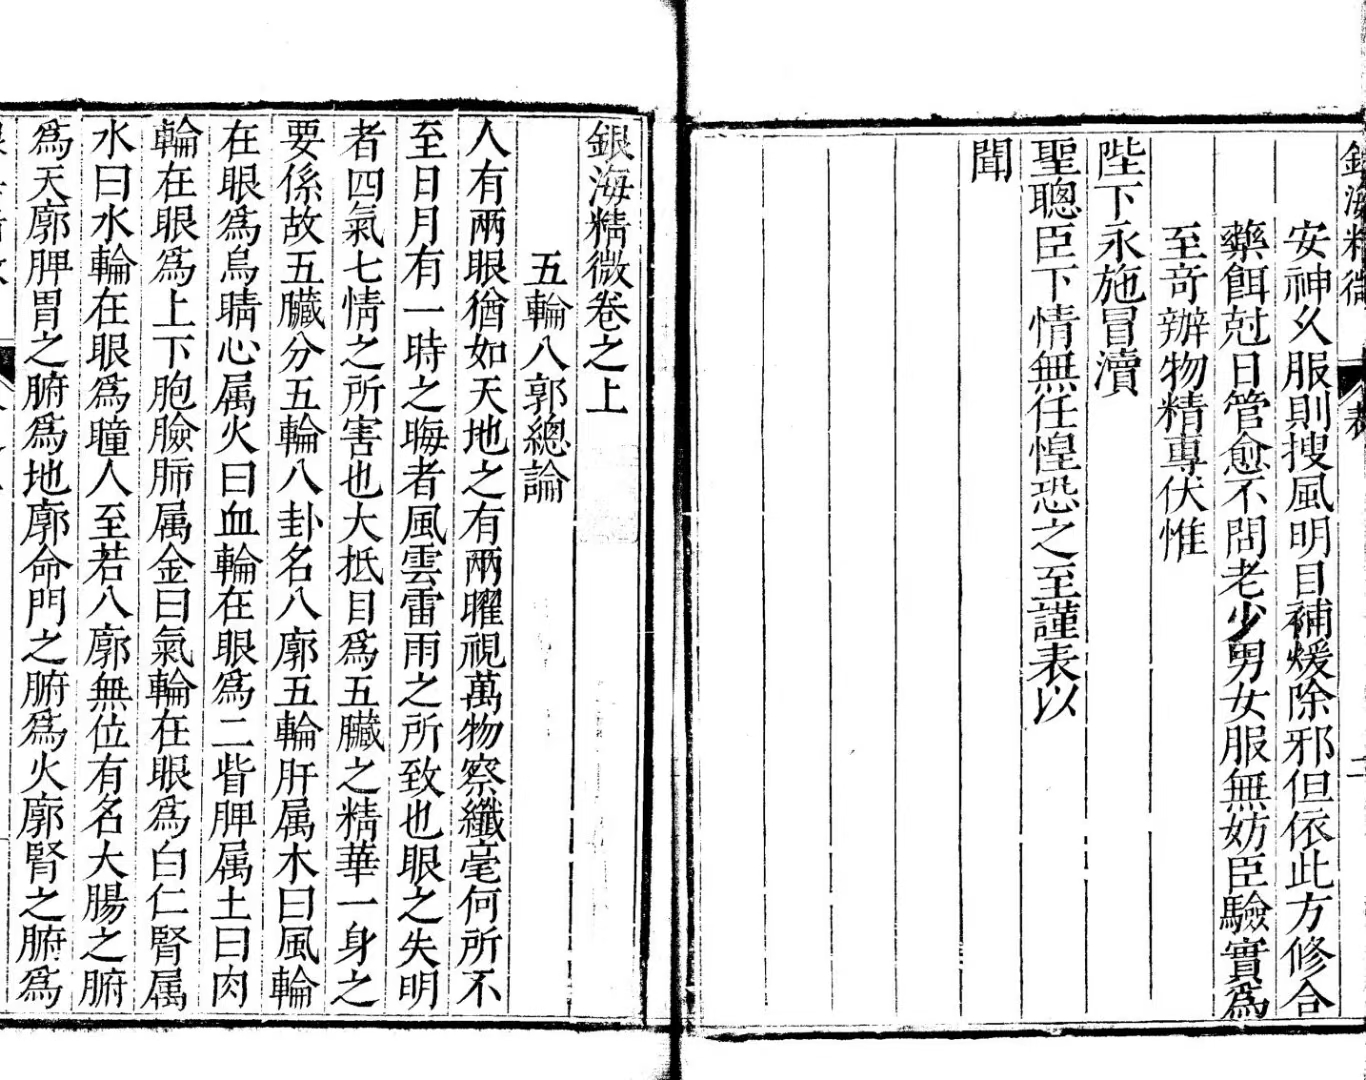 銀海精微
表
二
安神久服則搜風明目補煖除邪但依此方修合
藥餌尅日管愈不問老少男女服無妨臣驗實為
至竒辦物精專伏惟
陛下永施冒瀆
聖聰臣下情無任惶恐之至謹表以
聞
銀海精微卷之上
五輪八郭總論
人有兩眼猶如天地之有兩曜視萬物察纖毫何所不
至日月有一時之晦者風雲雷雨之所致也眼之失明
者四氣七情之所害也大抵目為五臟之精華一身之
要係故五臟分五輪八卦名八廓五輪肝属木曰風輪
在眼為烏睛心属火曰血輪在眼為二眥脾属土曰肉
輪在眼為上下胞瞼肺属金曰氣輪在眼為白仁腎属
水曰水輪在眼為瞳人至若八廓無位有名大腸之腑
為天廓脾胃之腑為地廓命門之腑為火廓腎之腑為